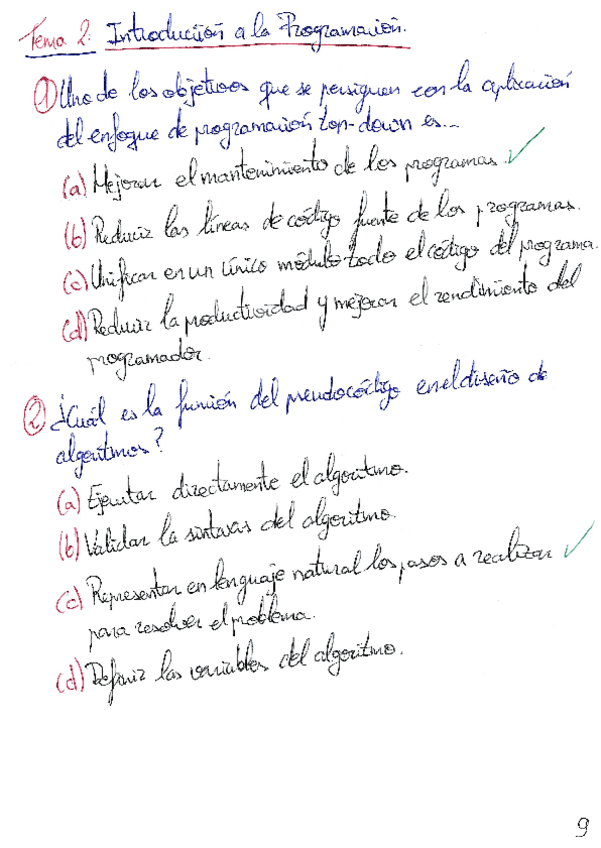 Tema 2: Introducción a la Programación.
① Uno de los objetivos que se persiguen con la aplicación
del enfoque de programación top-down es...
(a) Mejorar el mantenimiento de los programas. ✓
(b) Reducir las líneas de código fuente de los programas.
(c) Unificar en un único módulo todo el código del programa.
(d) Reducir la productividad y mejorar el rendimiento del
programador.
② ¿Cuál es la función del pseudocódigo en el diseño de
algoritmos?
(a) Ejecutar directamente el algoritmo.
(b) Validar la sintaxis del algoritmo.
(c) Representar en lenguaje natural los pasos a realizar ✓
para resolver el problema.
(d) Definir las variables del algoritmo.
9